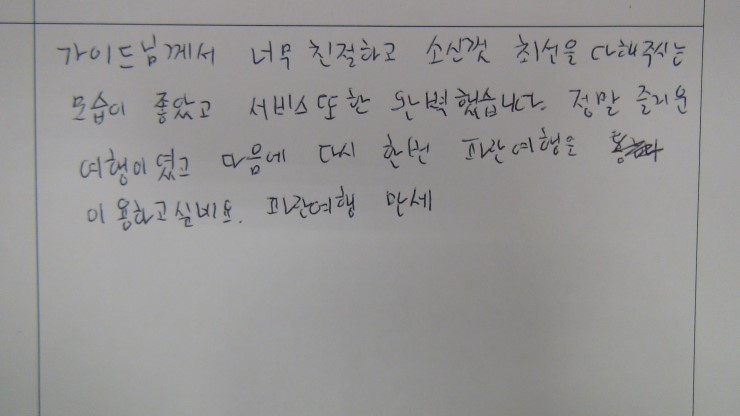 가이드님께서 너무 친절하고 소신껏 최선을 다해주시는
모습이 좋았고 서비스 또한 완벽했습니다. 정말 즐거운
여행이였고 다음에 다시 한번 파란여행을
이용하고 싶네요. 파란여행 만세